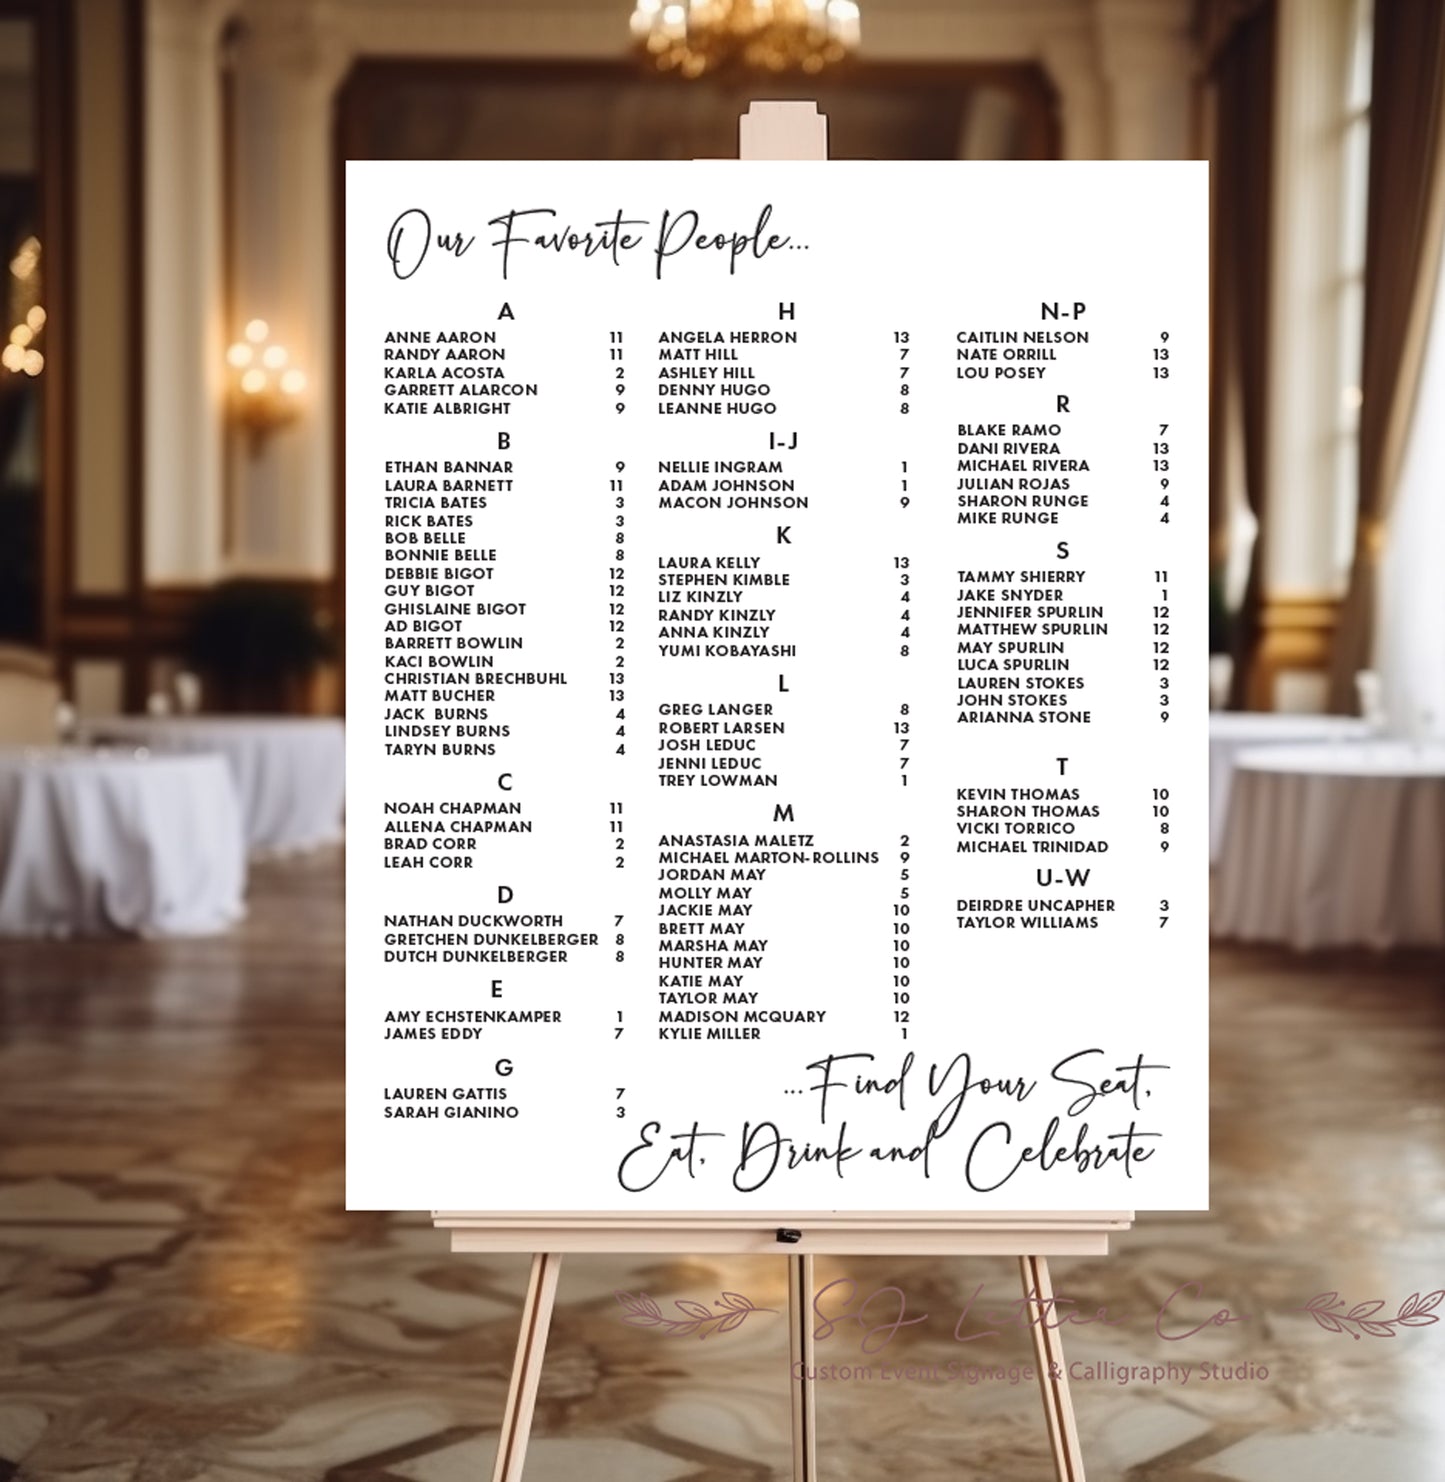 Our Favorite People...
A
ANNE AARON 11
RANDY AARON 11
KARLA ACOSTA 2
GARRETT ALARCON 9
KATIE ALBRIGHT 9
B
ETHAN BANNAR 9
LAURA BARNETT 11
TRICIA BATES 3
RICK BATES 3
BOB BELLE 8
BONNIE BELLE 8
DEBBIE BIGOT 12
GUY BIGOT 12
GHISLAINE BIGOT 12
AD BIGOT 12
BARRETT BOWLIN 2
KACI BOWLIN 2
CHRISTIAN BRECHBUHL 13
MATT BUCHER 13
JACK BURNS 4
LINDSEY BURNS 4
TARYN BURNS 4
C
NOAH CHAPMAN 11
ALLENA CHAPMAN 11
BRAD CORR 2
LEAH CORR 2
D
NATHAN DUCKWORTH 7
GRETCHEN DUNKELBERGER 8
DUTCH DUNKELBERGER 8
E
AMY ECHSTENKAMPER 1
JAMES EDDY 7
G
LAUREN GATTIS 7
SARAH GIANINO 3
H
ANGELA HERRON 13
MATT HILL 7
ASHLEY HILL 7
DENNY HUGO 8
LEANNE HUGO 8
I-J
NELLIE INGRAM 1
ADAM JOHNSON 1
MACON JOHNSON 9
K
LAURA KELLY 13
STEPHEN KIMBLE 3
LIZ KINZLY 4
RANDY KINZLY 4
ANNA KINZLY 4
YUMI KOBAYASHI 8
L
GREG LANGER 8
ROBERT LARSEN 13
JOSH LEDUC 7
JENNI LEDUC 7
TREY LOWMAN 1
M
ANASTASIA MALETZ 2
MICHAEL MARTON-ROLLINS 9
JORDAN MAY 5
MOLLY MAY 5
JACKIE MAY 10
BRETT MAY 10
MARSHA MAY 10
HUNTER MAY 10
KATIE MAY 10
TAYLOR MAY 10
MADISON MCQUARY 12
KYLIE MILLER 1
N-P
CAITLIN NELSON 9
NATE ORRILL 13
LOU POSEY 13
R
BLAKE RAMO 7
DANI RIVERA 13
MICHAEL RIVERA 13
JULIAN ROJAS 9
SHARON RUNGE 4
MIKE RUNGE 4
S
TAMMY SHIERRY 11
JAKE SNYDER 1
JENNIFER SPURLIN 12
MATTHEW SPURLIN 12
MAY SPURLIN 12
LUCA SPURLIN 12
LAUREN STOKES 3
JOHN STOKES 3
ARIANNA STONE 9
T
KEVIN THOMAS 10
SHARON THOMAS 10
VICKI TORRICO 8
MICHAEL TRINIDAD 9
U-W
DEIRDRE UNCAPHER 3
TAYLOR WILLIAMS 7
...Find Your Seat,
Eat, Drink and Celebrate
SJ Letter Co.
Custom Event Signage & Calligraphy Studio